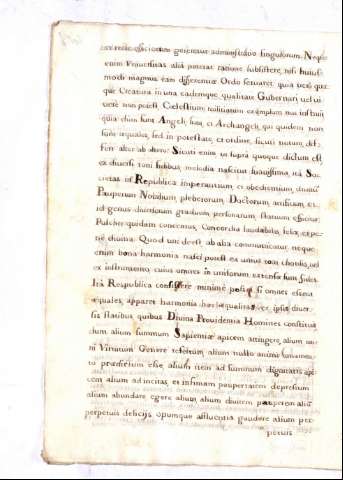 et recte efficiorum generatur administratio singulorum. Neque
enim Vniuersitas alia poterat ratione subsistere, nisi huius-
modi magnus eam differentiæ Ordo seruaret. quia verò quæ-
que Creatura in vna eademque, qualitate Gubernari, uel ui-
uere non potest, Cælestium militiarum exemplum nos instruit,
quia dum sunt Angeli, sunt et Archangeli, qui quidem non
sunt æquales, sed in potestate, et ordine, sicuti notum, dif-
fert alter ab altero. Sicuti enim ut supra quoque dictum est,
ex diuersis toni fidibus, melodia nascitur suauissima, ità So-
cietas in Republica imperantium, et obedientium, diuitum
Pauperum Nobilium, plebeiorum, Doctorum, artificum, et
id genus diuersorum graduum, personarum, statuum efficitur
Pulcher quidam concentus, Concordia laudabilis, felix, et pe-
nè diuina. Quod uni deest ab alia communicatur, neque
enim bona harmonia nasci potest ex unius toni chordis, uel
ex instrumento, cuius omnes in unisonum extensæ sunt fides.
Ità Respublica consistere minimè potest si omnes essent
æquales, apparet harmonia hæc inæqualitas uer ipsis diuer-
sis statibus, quibus Diuina Prouidentia Homines constituit
dum alium summum Sapientiæ apicem attingere, alium om-
ni Virtutum Genere refertum, alium nullo animi ornamen-
to præditum esse, alium item ad summum dignitatis api-
cem alium ad incitas, et infimam paupertatem depressum
alium abundare egere alium, alium diuitem pauperem alium
perpetuis delicijs opumque affluentia gaudere alium per-
petuis